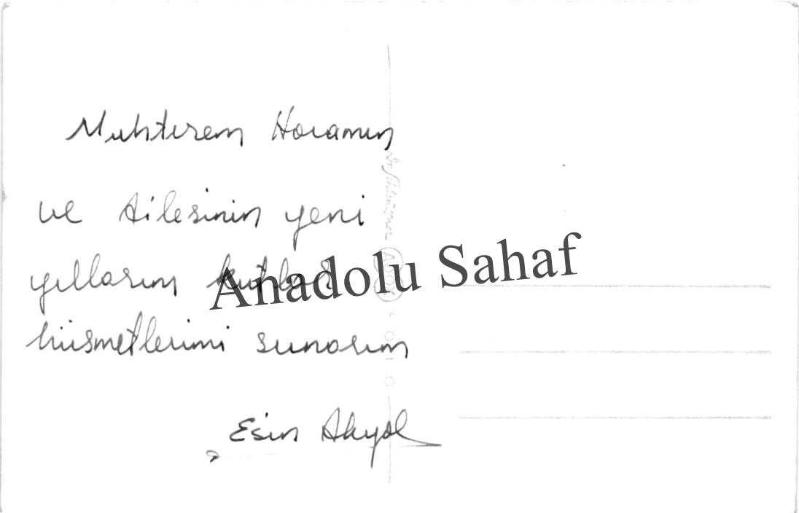 Muhterem Hocamın
ve Ailesinin yeni
yıllarını kutlar
Anadolu Sahaf
hürmetlerimi sunarım
Esin Akyol